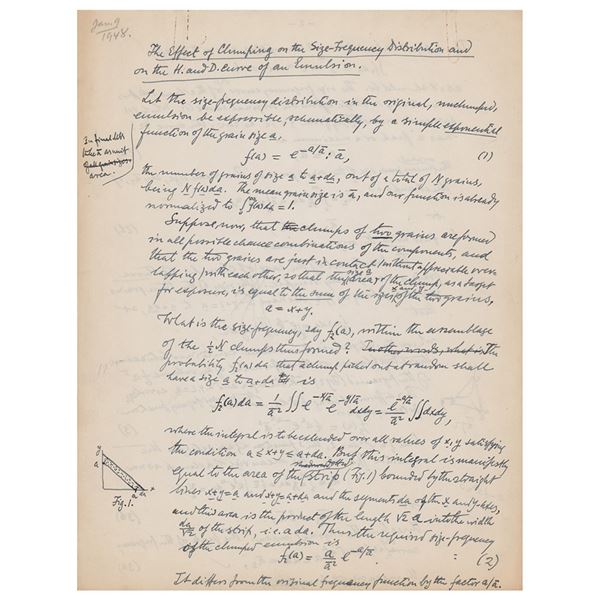 Jan 9
1948.
The Effect of Clumping on the Size-Frequency Distribution and
on the H. and D. Curve of an Emulsion.
Let the size-frequency distribution in the original, unclumped,
emulsion be expressible, schematically, by a simple exponential
function of the grain size a,
f(a) = e^{-a/ā} : ā, (1)
the number of grains of size a to a+da, out of a total of N grains,
being N f(a)da. The mean grain size is ā, and our function is already
normalized to ∫f(a)da = 1.
In final
area.
Suppose now, that the clumps of two grains are formed
in all possible chance combinations of the components, and
that the two grains are just in contact (without appreciable over-
lapping) with each other, so that the size a (area) of the clump, as a target
for exposure, is equal to the sum of the sizes x and y of the two grains,
a = x+y.
What is the size-frequency, say f₂(a), within the assemblage
of the ½N clumps thus formed? In other words, what is the
probability f₂(a)da that a clump picked out at random shall
have a size a to a+da is
f₂(a)da = 1/ā² ∫∫ e^{-x/ā} e^{-y/ā} dxdy = e^{-a/ā}/ā² ∫∫ dxdy,
where the integral is to be extended over all values of x, y satisfying
the condition a ≤ x+y ≤ a+da. But this integral is manifestly
equal to the area of the strip (Fig. 1) bounded by the straight
lines x+y=a and x+y=a+da and the segments da of the x and y-axes,
and this area is the product of the length √2 a into the width
da/√2 of the strip, i.e. a da. Thus the required size-frequency
of the clumped emulsion is
f₂(a) = a/ā² e^{-a/ā}. (2)
It differs from the original frequency function by the factor a/ā.
y
a
a
x
Fig. 1.